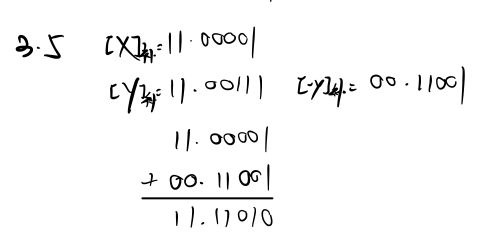 3.5 [X]补=11.00001
[Y]补=11.00111 [-Y]补=00.11001
11.00001
+ 00.11001
11.11010